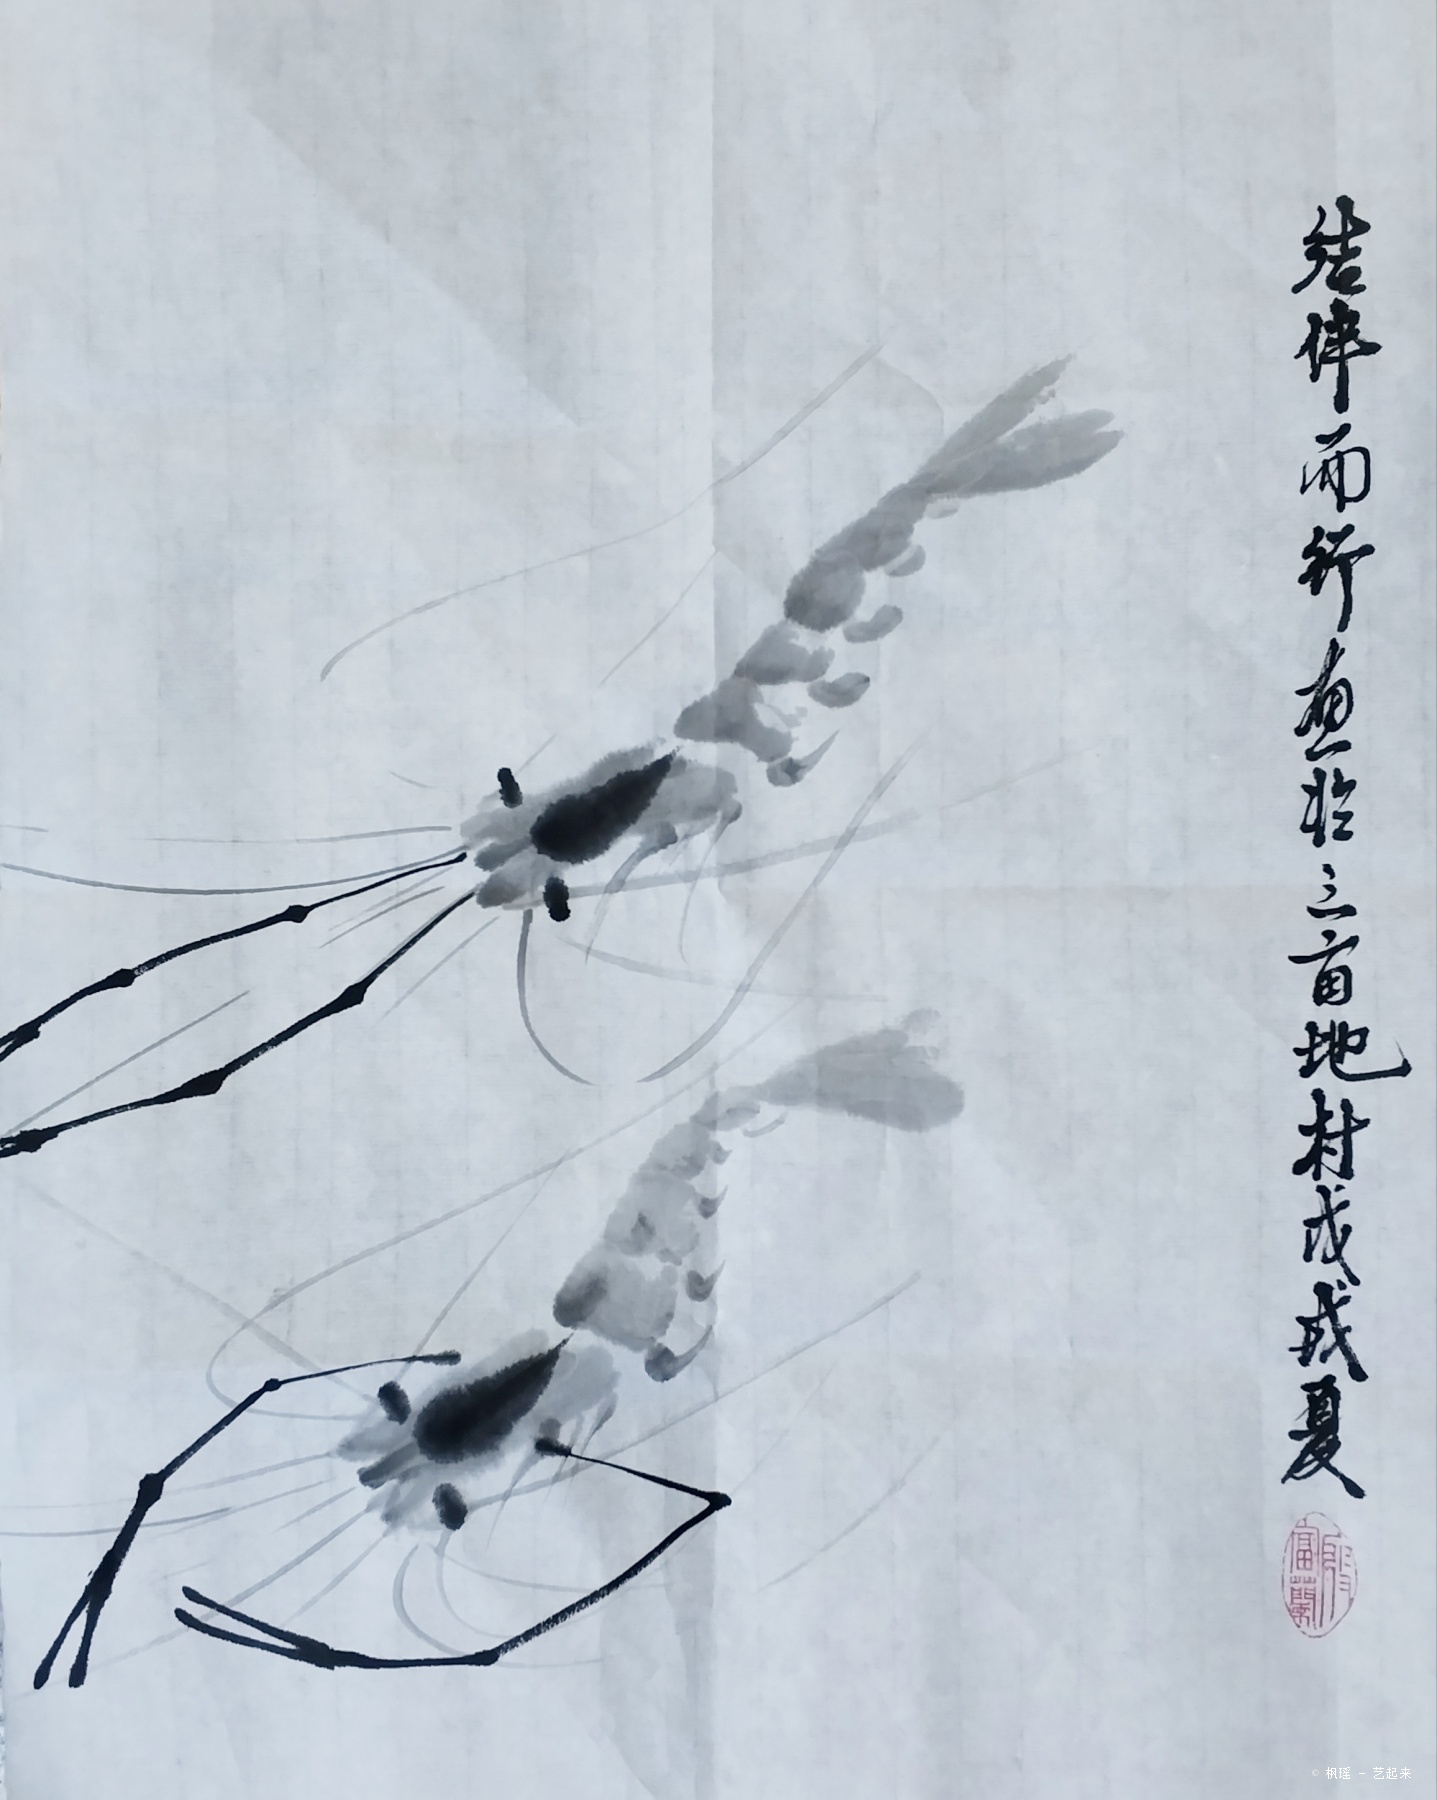 结伴而行画於三亩地村戊戌夏
殷富兰
© 枫瑶 - 艺起来